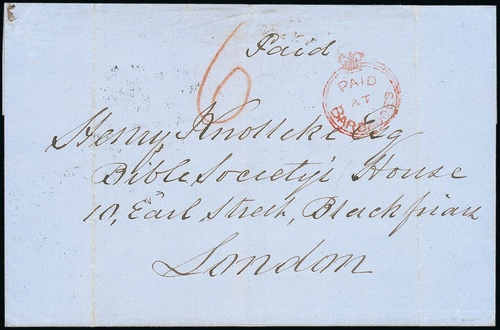 Paid
6
PAID
AT
BARBADOES
Henry Knolleke Esq
Bible Society's House
10, Earl Street, Blackfriars
London